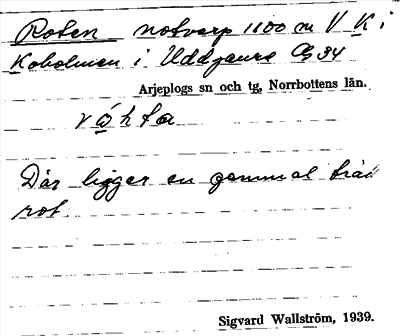 Roten notvarp 1100 m V K i
Kaholmen i Uddjaure Ag 34
Arjeplogs sn och tg, Norrbottens län.
Där ligger en gammal träd
rot.
Sigvard Wallström, 1939.